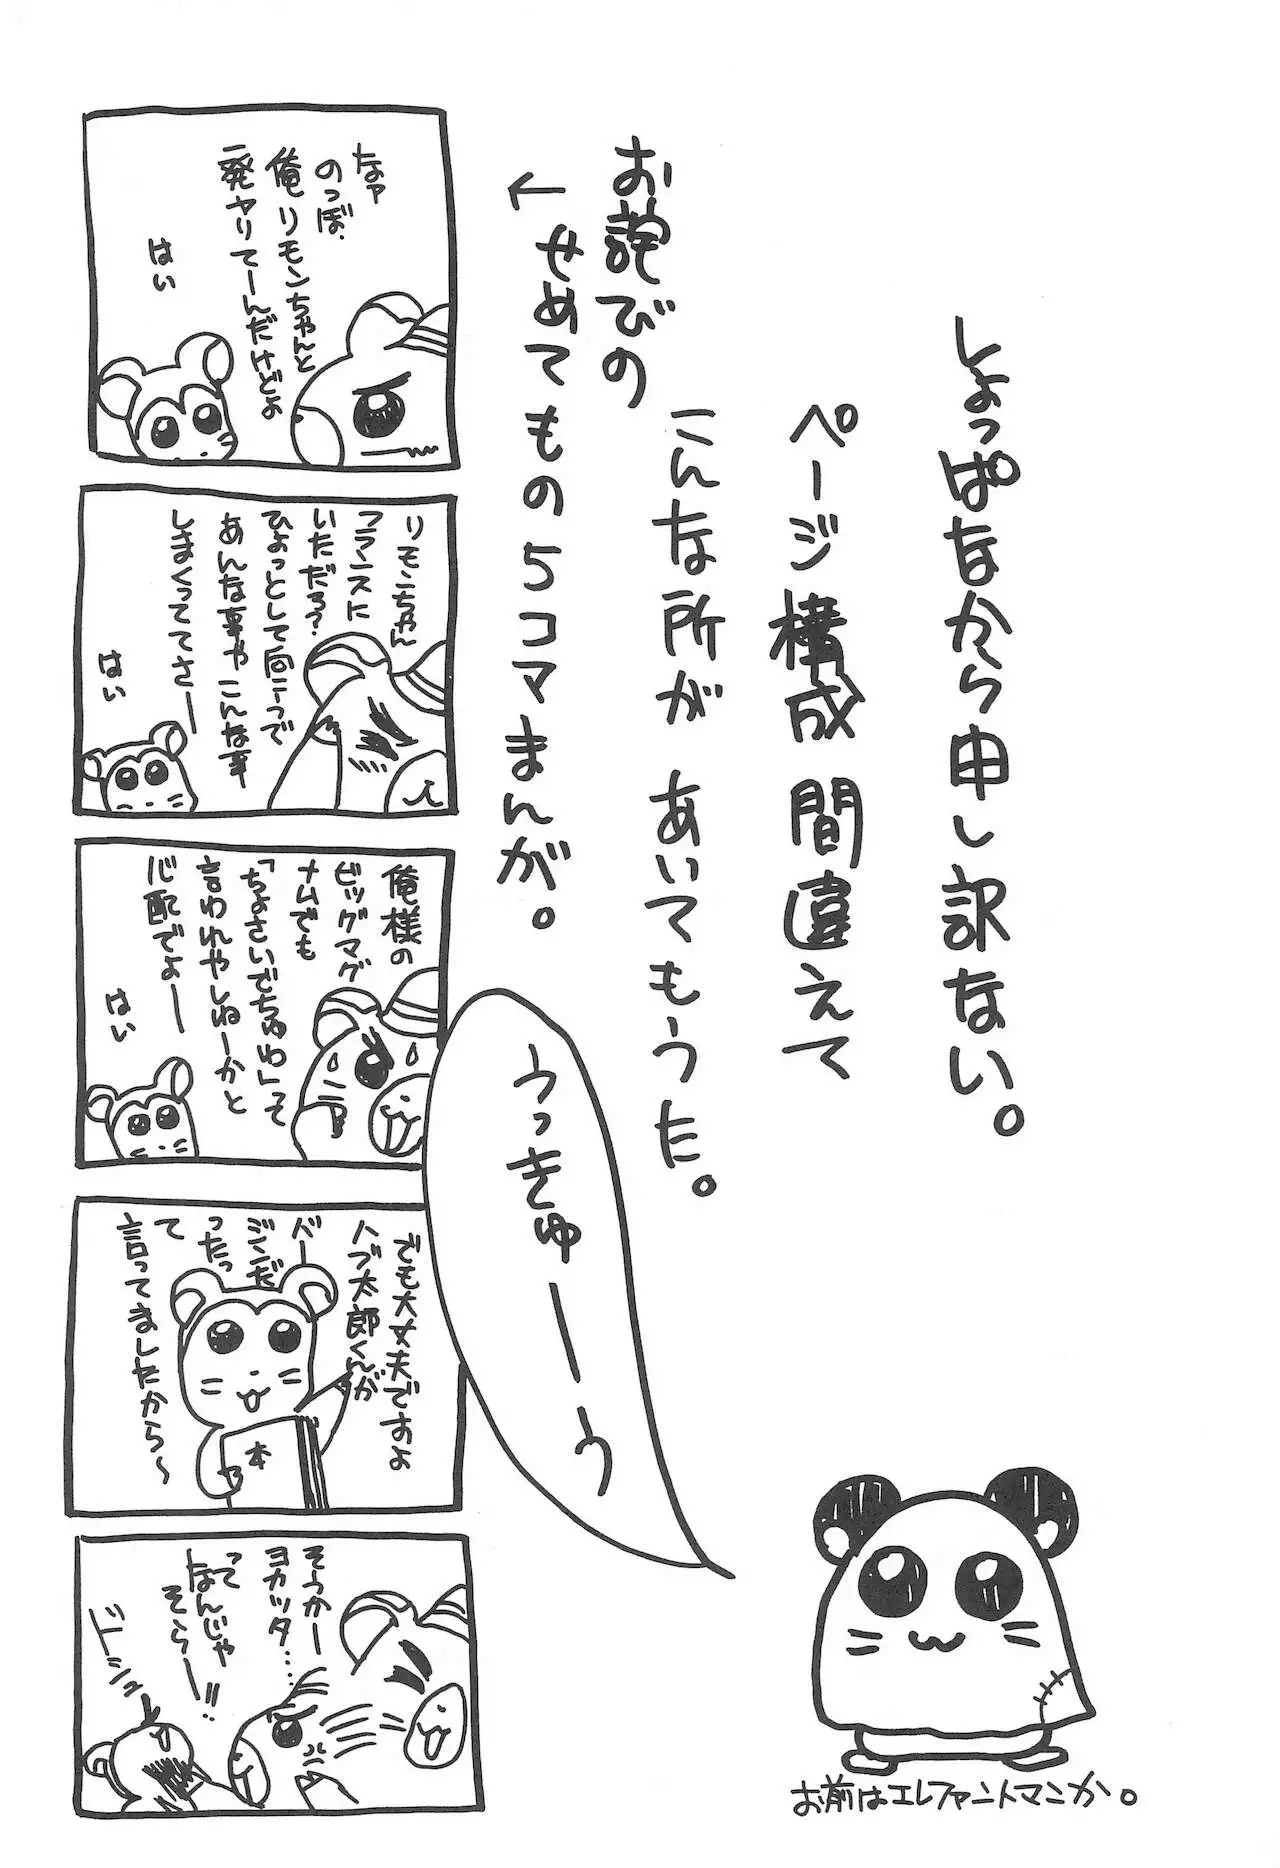 しょっぱなから申し訳ない。
ページ構成間違えて
こんな所があいてもうた。
お詫びの
せめてもの5コマまんが。
←
なァ
のっぽ、
俺リモンちゃんと
一発ヤリてーんだけどょ
はい
リモンちゃん
フランスに
いただろ?
ひょっとして向こうで
あんな事やこんな事
しまくっててさー
はい
俺様の
ビッグマグ
ナムでも
「ちょさいでちゅわ」って
言われやしねーかと
心配でよー
はい
うっきゅーーう
でも大丈夫ですよ
ハブ太郎くんが
バー
ジンだ
ったっ
て
言ってましたから〜
本
そうかー
ヨカッタ…
って
なんじゃ
そらー!!
ドシュ
お前はエレファントマンか。